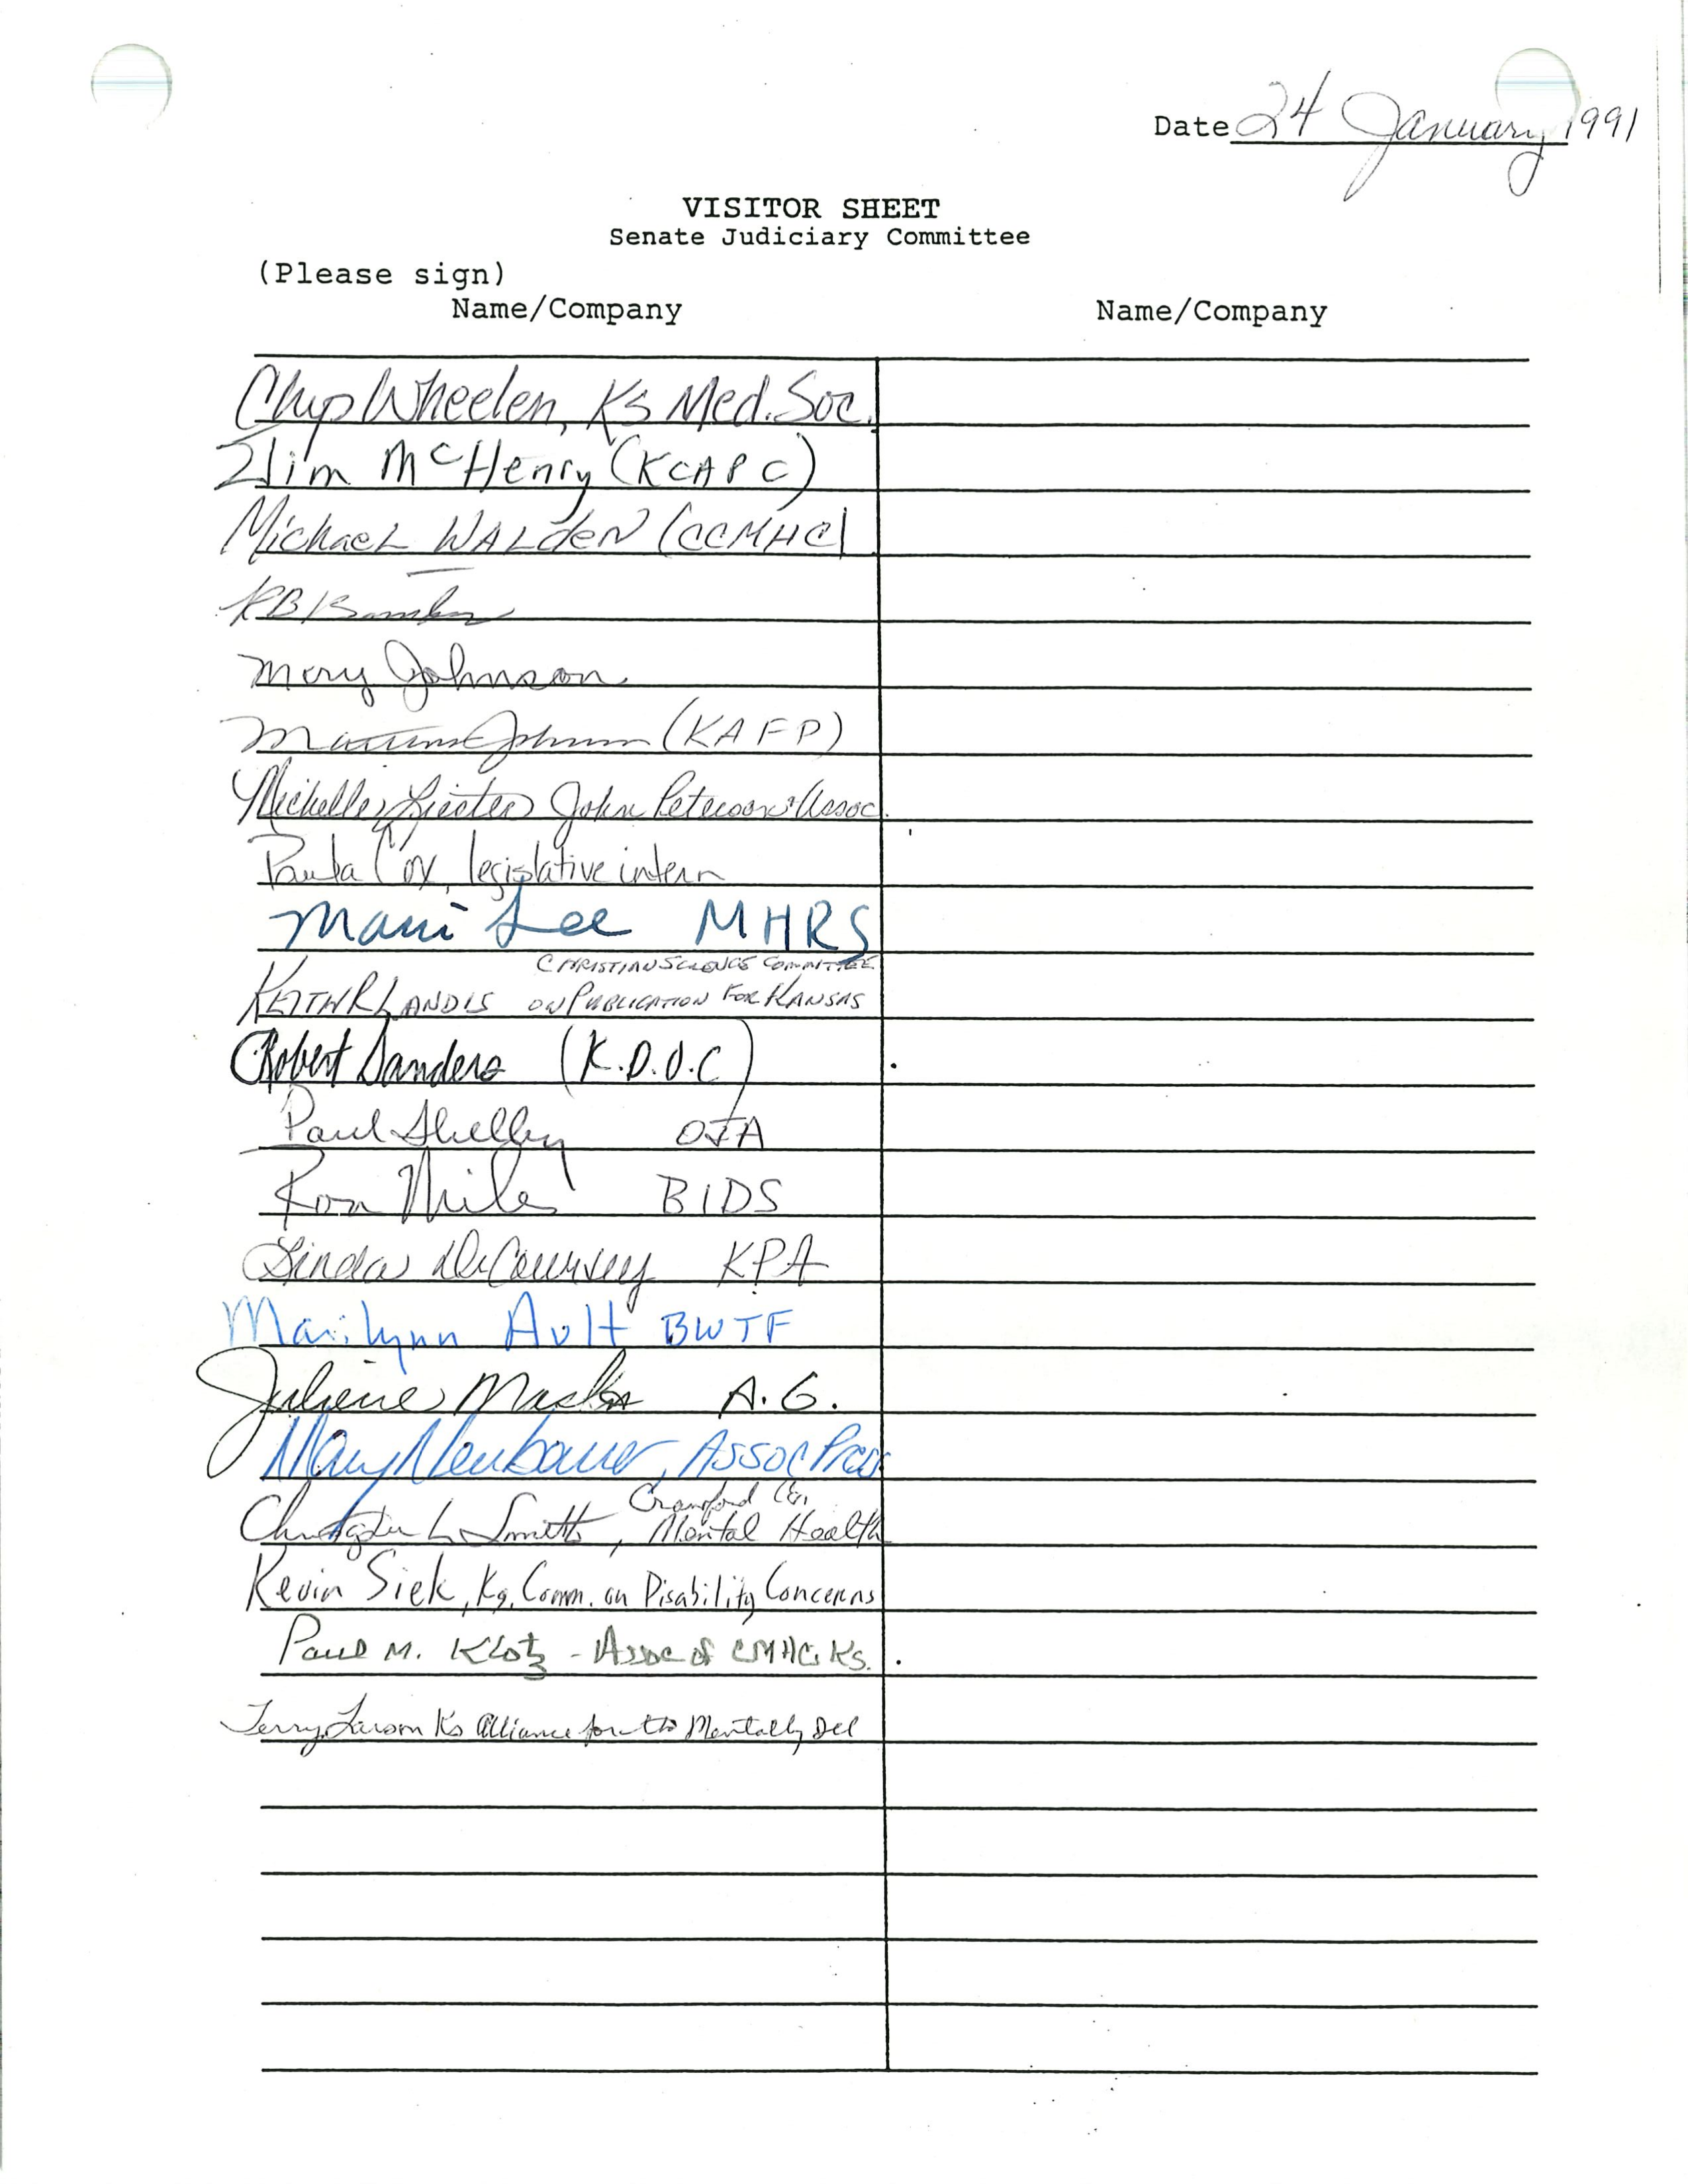 Date 24 January 1991
VISITOR SHEET
Senate Judiciary Committee
(Please sign)
Name/Company Name/Company
Chip Wheelen, Ks Med. Soc.
Jim McHenry (KCAPC)
Michael WALdeN (CCMHC)
Mary Johnson
(KAFP)
Michelle Liester John Peterson & Assoc.
Paula Cox, legislative intern
Lee MHRS
CHRISTIAN SCIENCE COMMITTEE
KEITH R LANDIS ON PUBLICATION FOR KANSAS
Robert Sanders (K.D.O.C)
Paul Shelby OJA
Ron Miles BIDS
Linda DeCoursey KPA
Marilynn Ault BWTF
Juliene Maska A.G.
Mary Neubauer, ASSOC Press
Crawford Co.
Christopher L. Smith, Mental Health
Kevin Siek, Ks. Comm. on Disability Concerns
Paul M. Klotz - Assoc of CMHCs Ks.
Terry Larson Ks Alliance for the Mentally Ill